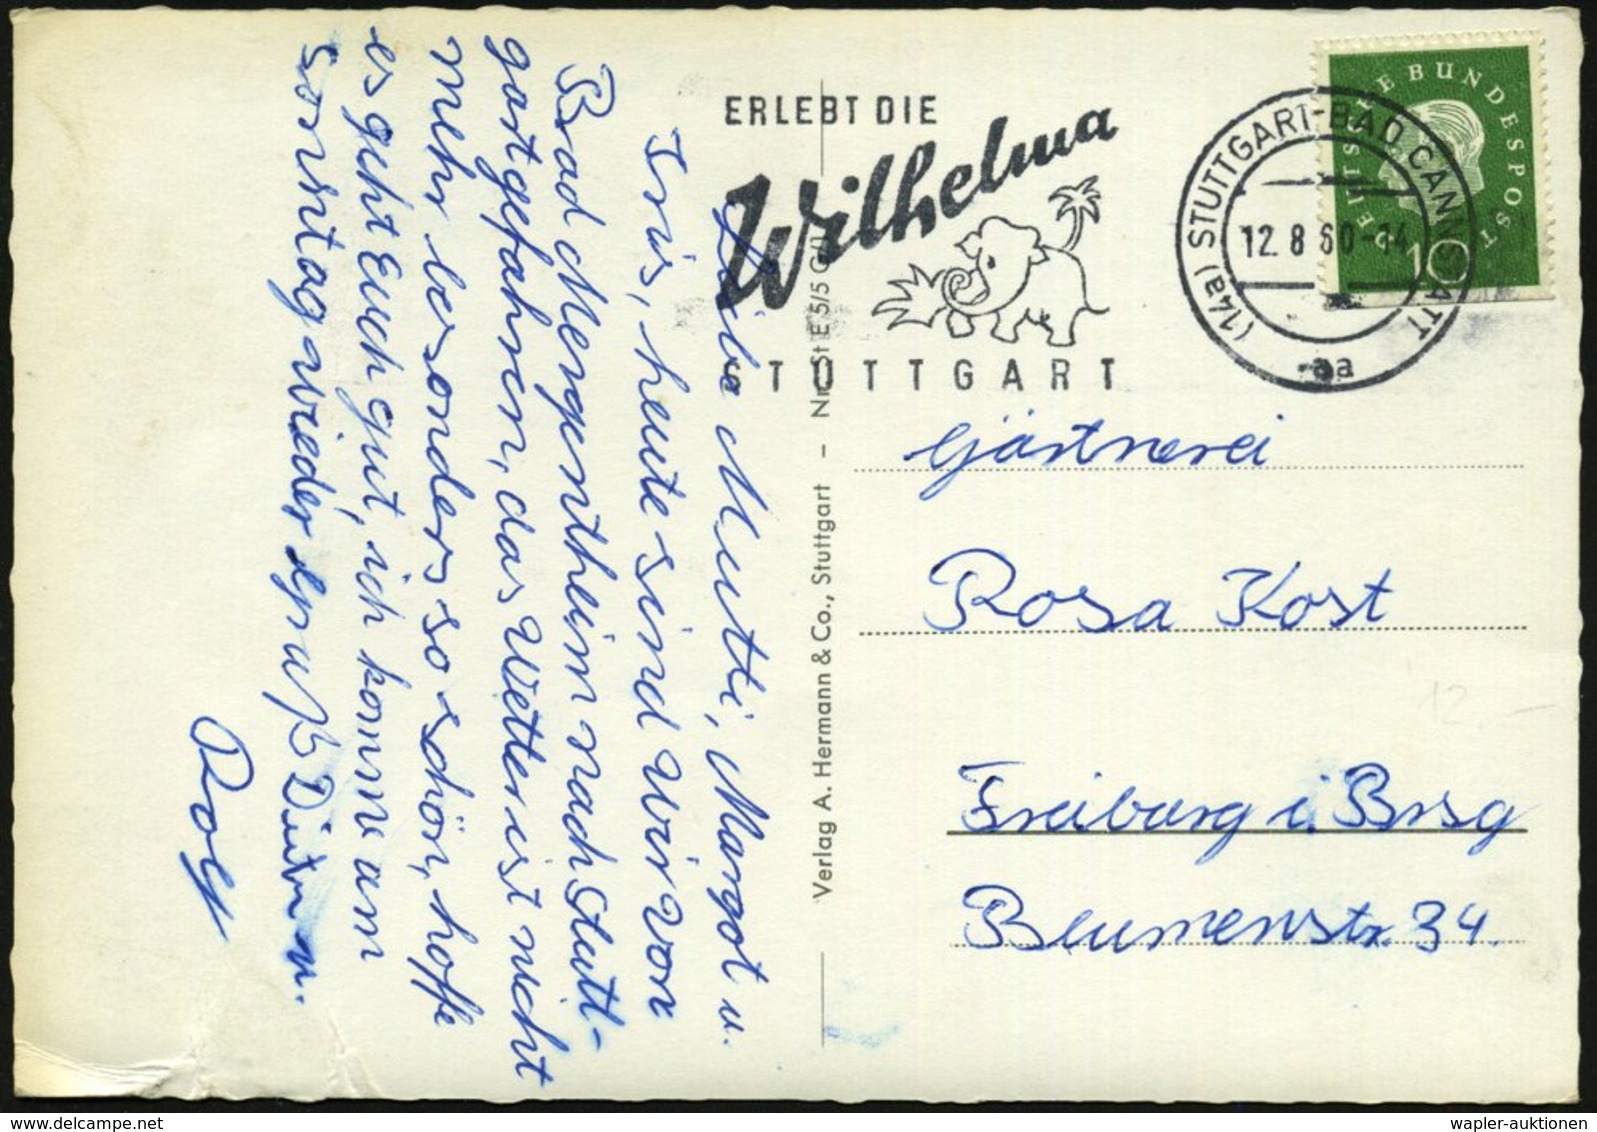 ERLEBT DIE
Wilhelma
STUTTGART
(14a) STUTTGART-BAD CANNSTATT
12. 8 60-14
aa
DEUTSCHE BUNDESPOST
10
Liebe Mutti, Margot u.
Iris, heute sind wir von
Bad Mergentheim nach Stutt-
gart gefahren, das Wetter ist nicht
mehr besonders so schön, hoffe
es geht Euch gut, ich komme am
Sonntag wieder Gruß Dieter u.
Rolf
Verlag A. Hermann & Co., Stuttgart – Nr. St E 5/5
Gärtnerei
Rosa Kost
Freiburg i. Brsg
Blumenstr. 34.
12.–
wapler-auktionen